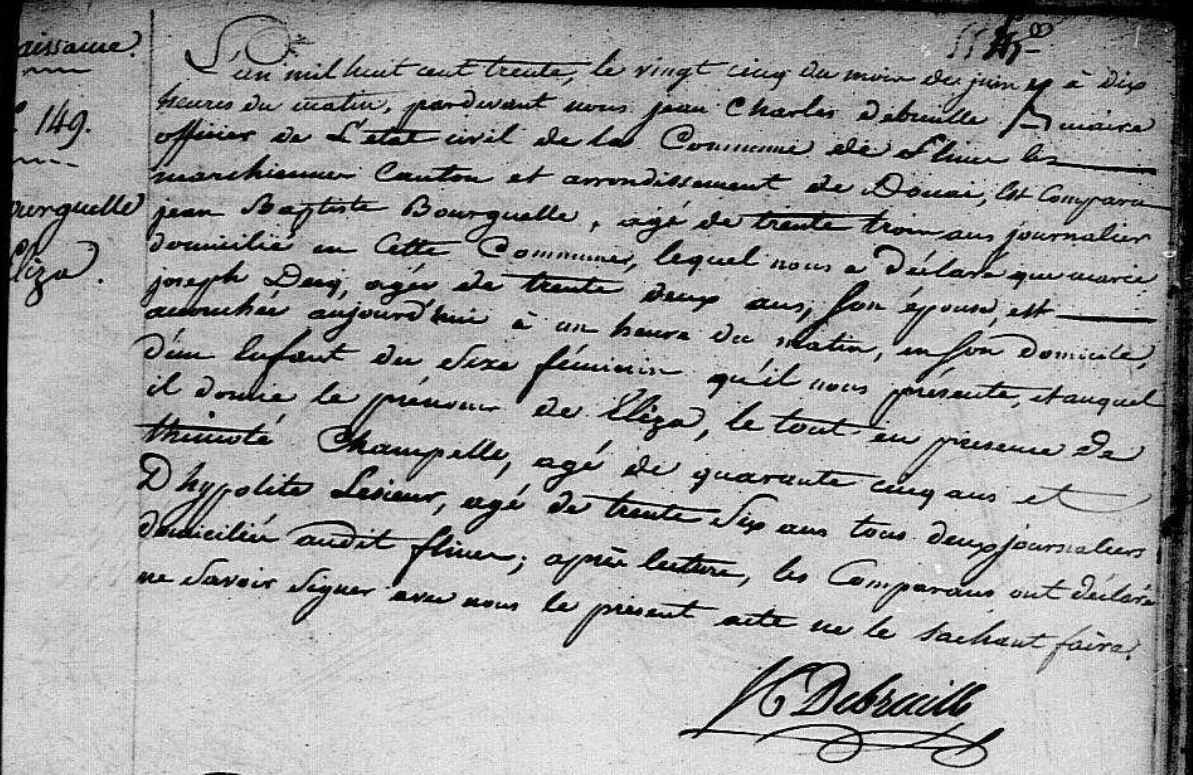 aissance.
149.
ourguelle
liza.
L'an mil huit cent trente, le vingt cinq du mois de juin à dix
heures du matin, pardevant nous jean Charles Debruille maire
officier de L'état civil de la Commune de fline lez
marchienner Canton et arrondissement de Douai, Est Comparu
jean Baptiste Bourguelle, agé de trente trois ans journalier
domicilié en Cette Commune, lequel nous a déclaré que marie
joseph agée de trente deux ans, son épouse, est
accouchée aujourd'hui à un heure du matin, en son domicile,
d'un Enfant du Sexe féminin qu'il nous présente, et auquel
il donne le prénom de Éliza, le tout en présence de
thimoté Champelle, agé de quarante cinq ans et
D'hypolite Lesieur, agé de trente Six ans tous deux journaliers
domiciliés audit fline; après lecture, les Comparans ont déclaré
ne Savoir Signer avec nous le présent acte ne le sachant faire.
JC Debruille